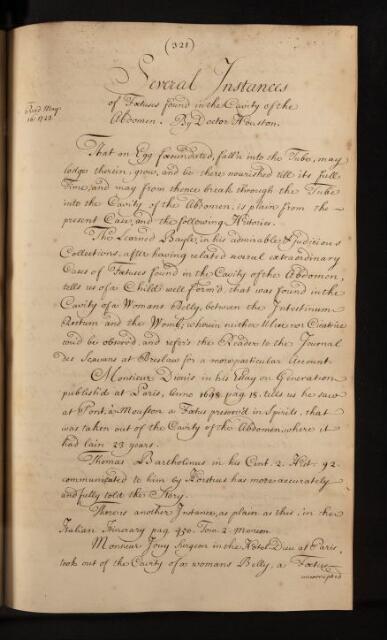 (321)
Several Instances
Read May
16: 1723.
of Fœtuses found in the Cavity of the
Abdomen. By Doctor Houston.
That an Egg fœcundated, fall'n into the Tube, may
lodge therein, grow, and be there nourished till its full
Time, and may from thence break through the Tube
into the Cavity of the Abdomen, is plain from the
present Case, and the following Histories.
The Learned Bayle, in his admirable & Judicious
Collections, after having related several extraordinary
Cases of Fœtuses found in the Cavity of the Abdomen,
tells us of a Child well form'd, that was found in the
Cavity of a Womans Belly, between the Intestinum
Rectum and the Womb, wherein neither Ulcer nor Cicatrice
cou'd be observ'd, and refers the Reader to the Journal
Des Scavans at Breslaw for a more particular Account
Monsieur Dionis in his Essay on Generation
publish'd at Paris, Anno 1698. pag. 18. tells us he saw
at Pont, à Mousson a Fœtus preserv'd in Spirits, that
was taken out of the Cavity of the Abdomen, where it
had lain 23 years.
Thomas Bartholinus in his Cent. 2. Hist. 92
communicated to him by Horstius has more accurately
and fully told the Story.
Theres another Instance, as plain as this, in the
Italian Itinerary pag. 450. Tom. 2.
Monsieur Jouy Surgeon in the Hotel Dieu at Paris,
took out of the Cavity of a womans Belly, a Fœtus